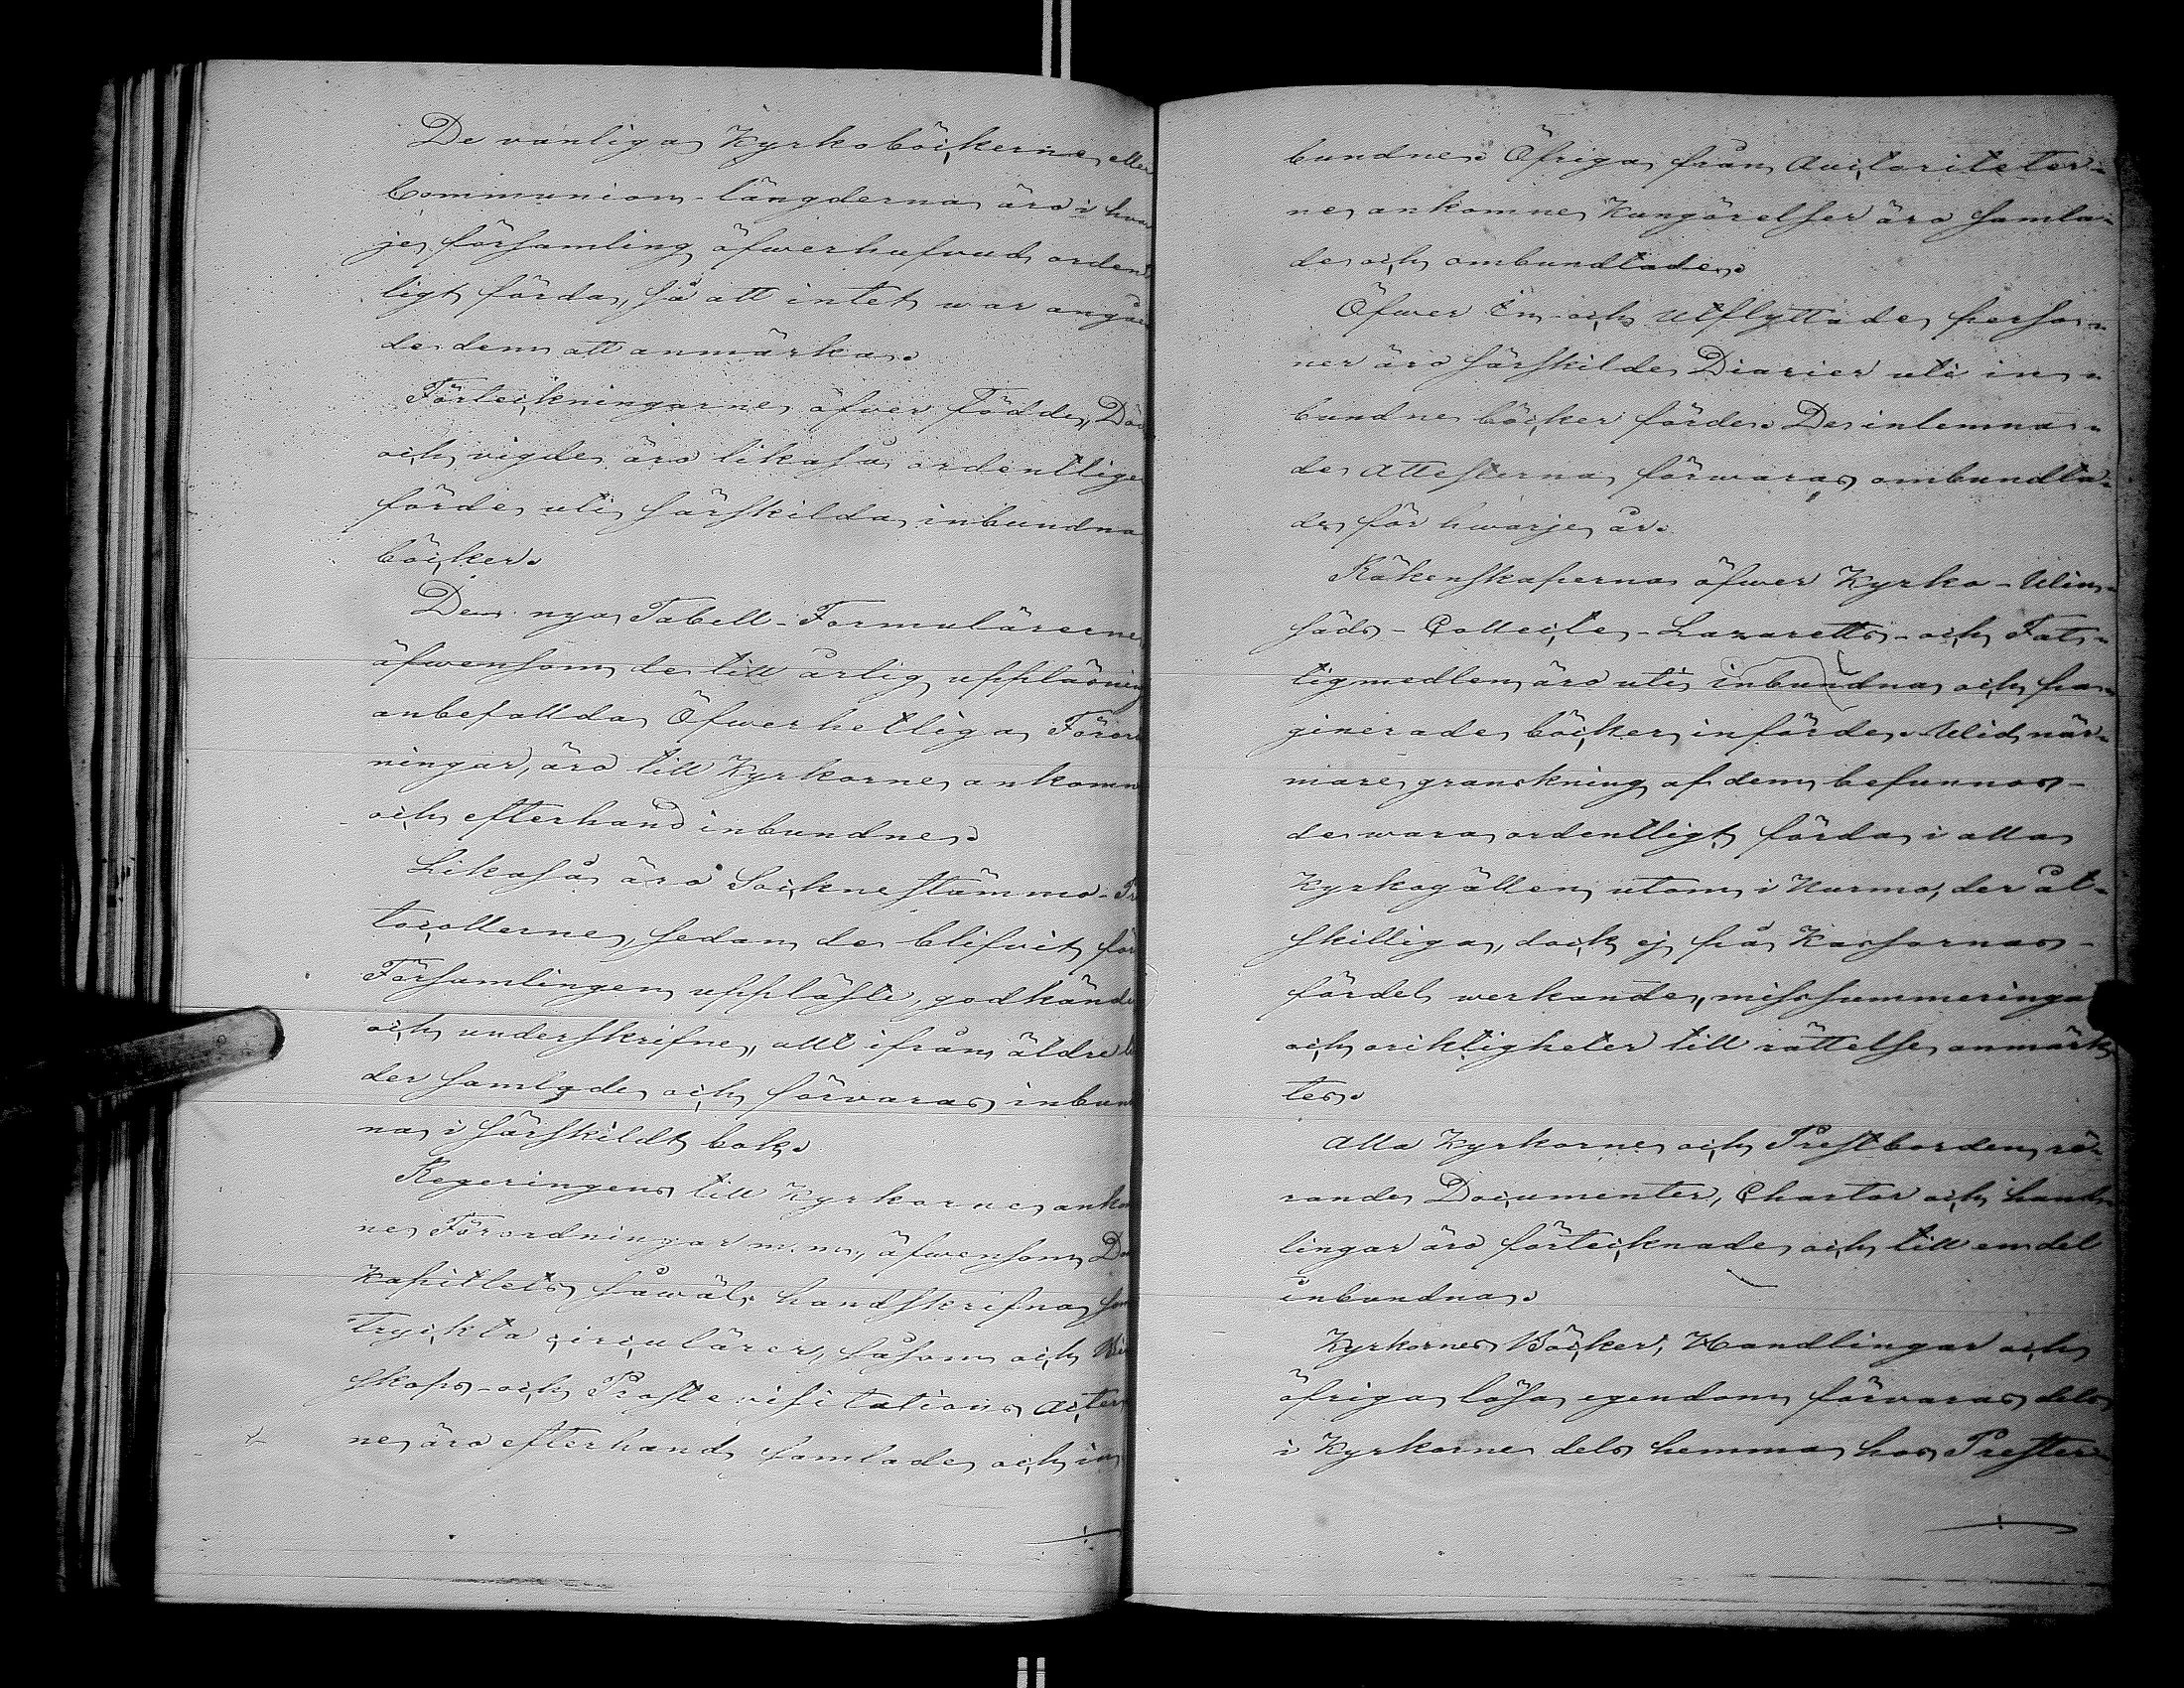 De vanliga Kyrkoböckerne eller
Communion-längderna äro i hvar
je församling öfwerhufvud ordent
ligt förda, så att intet war angåen
de dem att anmärka.
Förteckningarne öfver Födde, Död
och vigde äro likaså ordentlige
förde uti särskilda inbundna
böcker.
De nya Tabell-Formulärerne,
äfwensom de till årlig uppläsning
anbefallda Öfwerhetliga Förord
ningar, äro till Kyrkorne ankomn
och efterhand inbundne.
Likaså äro Socknestämmo-Pr
tocollerne, sedan de blifvit för
Församlingen uppläste, godkände
och underskrifne, allt ifrån äldre ti
der samlade och förvaras inbund
na i särskildt bok.
Regeringens till Kyrkorne ankom
ne Förordningar m.m., äfwensom Dom
Kapitlets såwäl handskrifna som
tryckta circulärer, såsom och Bi
skops- och Prostevisitations Acter
ne äro efterhand samlade och in
bundne. Öfriga från Auctoriteter-
ne ankomne Kungörelser äro samla-
de och ombundtade.
Öfwer In- och Utflyttade perso-
ner äro särskilde Diarier uti in-
bundne böcker förde. De inlemna-
de Attesterna förwaras ombundta-
de för hwarje år.
Räkenskaperna öfwer Kyrko-Win-
säds-Collecte-Lazaretts- och Fat-
tigmedlen äro uti inbundna och pa-
ginerade böcker införde. Wid när-
mare granskning af dem befunnos
de wara ordentligt förda i alla
Kyrkogällen utom i Nurmo, der åt-
skilliga, dock ej på Kassornas
fördel werkande, missummeringar
och oriktigheter till rättelse anmärk
tes.
Alla Kyrkorne och Prestborden rö-
rande Documenter, Chartor och hand-
lingar äro förtecknade och till en del
inbundna.
Kyrkornes Böcker, Handlingar och
öfriga lösa egendom förvaras dels
i Kyrkorne dels hemma hos Prester-